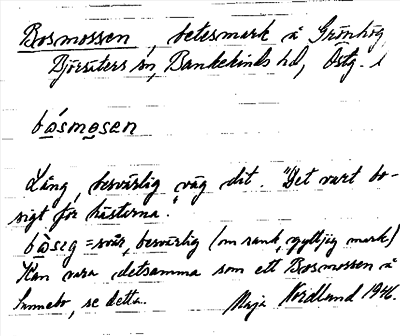 Bosmossen, betesmark å Grönhög
Björsäters sn, Bankekinds hd, Östg. l
bósmosen
Lång, besvärlig väg dit. "Det vart bo-
sigt för hästarna."
bòseg = svår, besvärlig (om sank, gyttjig mark)
Kan vara detsamma som ett Bosmossen å
Sunnebo, se detta.
Maja Nordlund 1946.